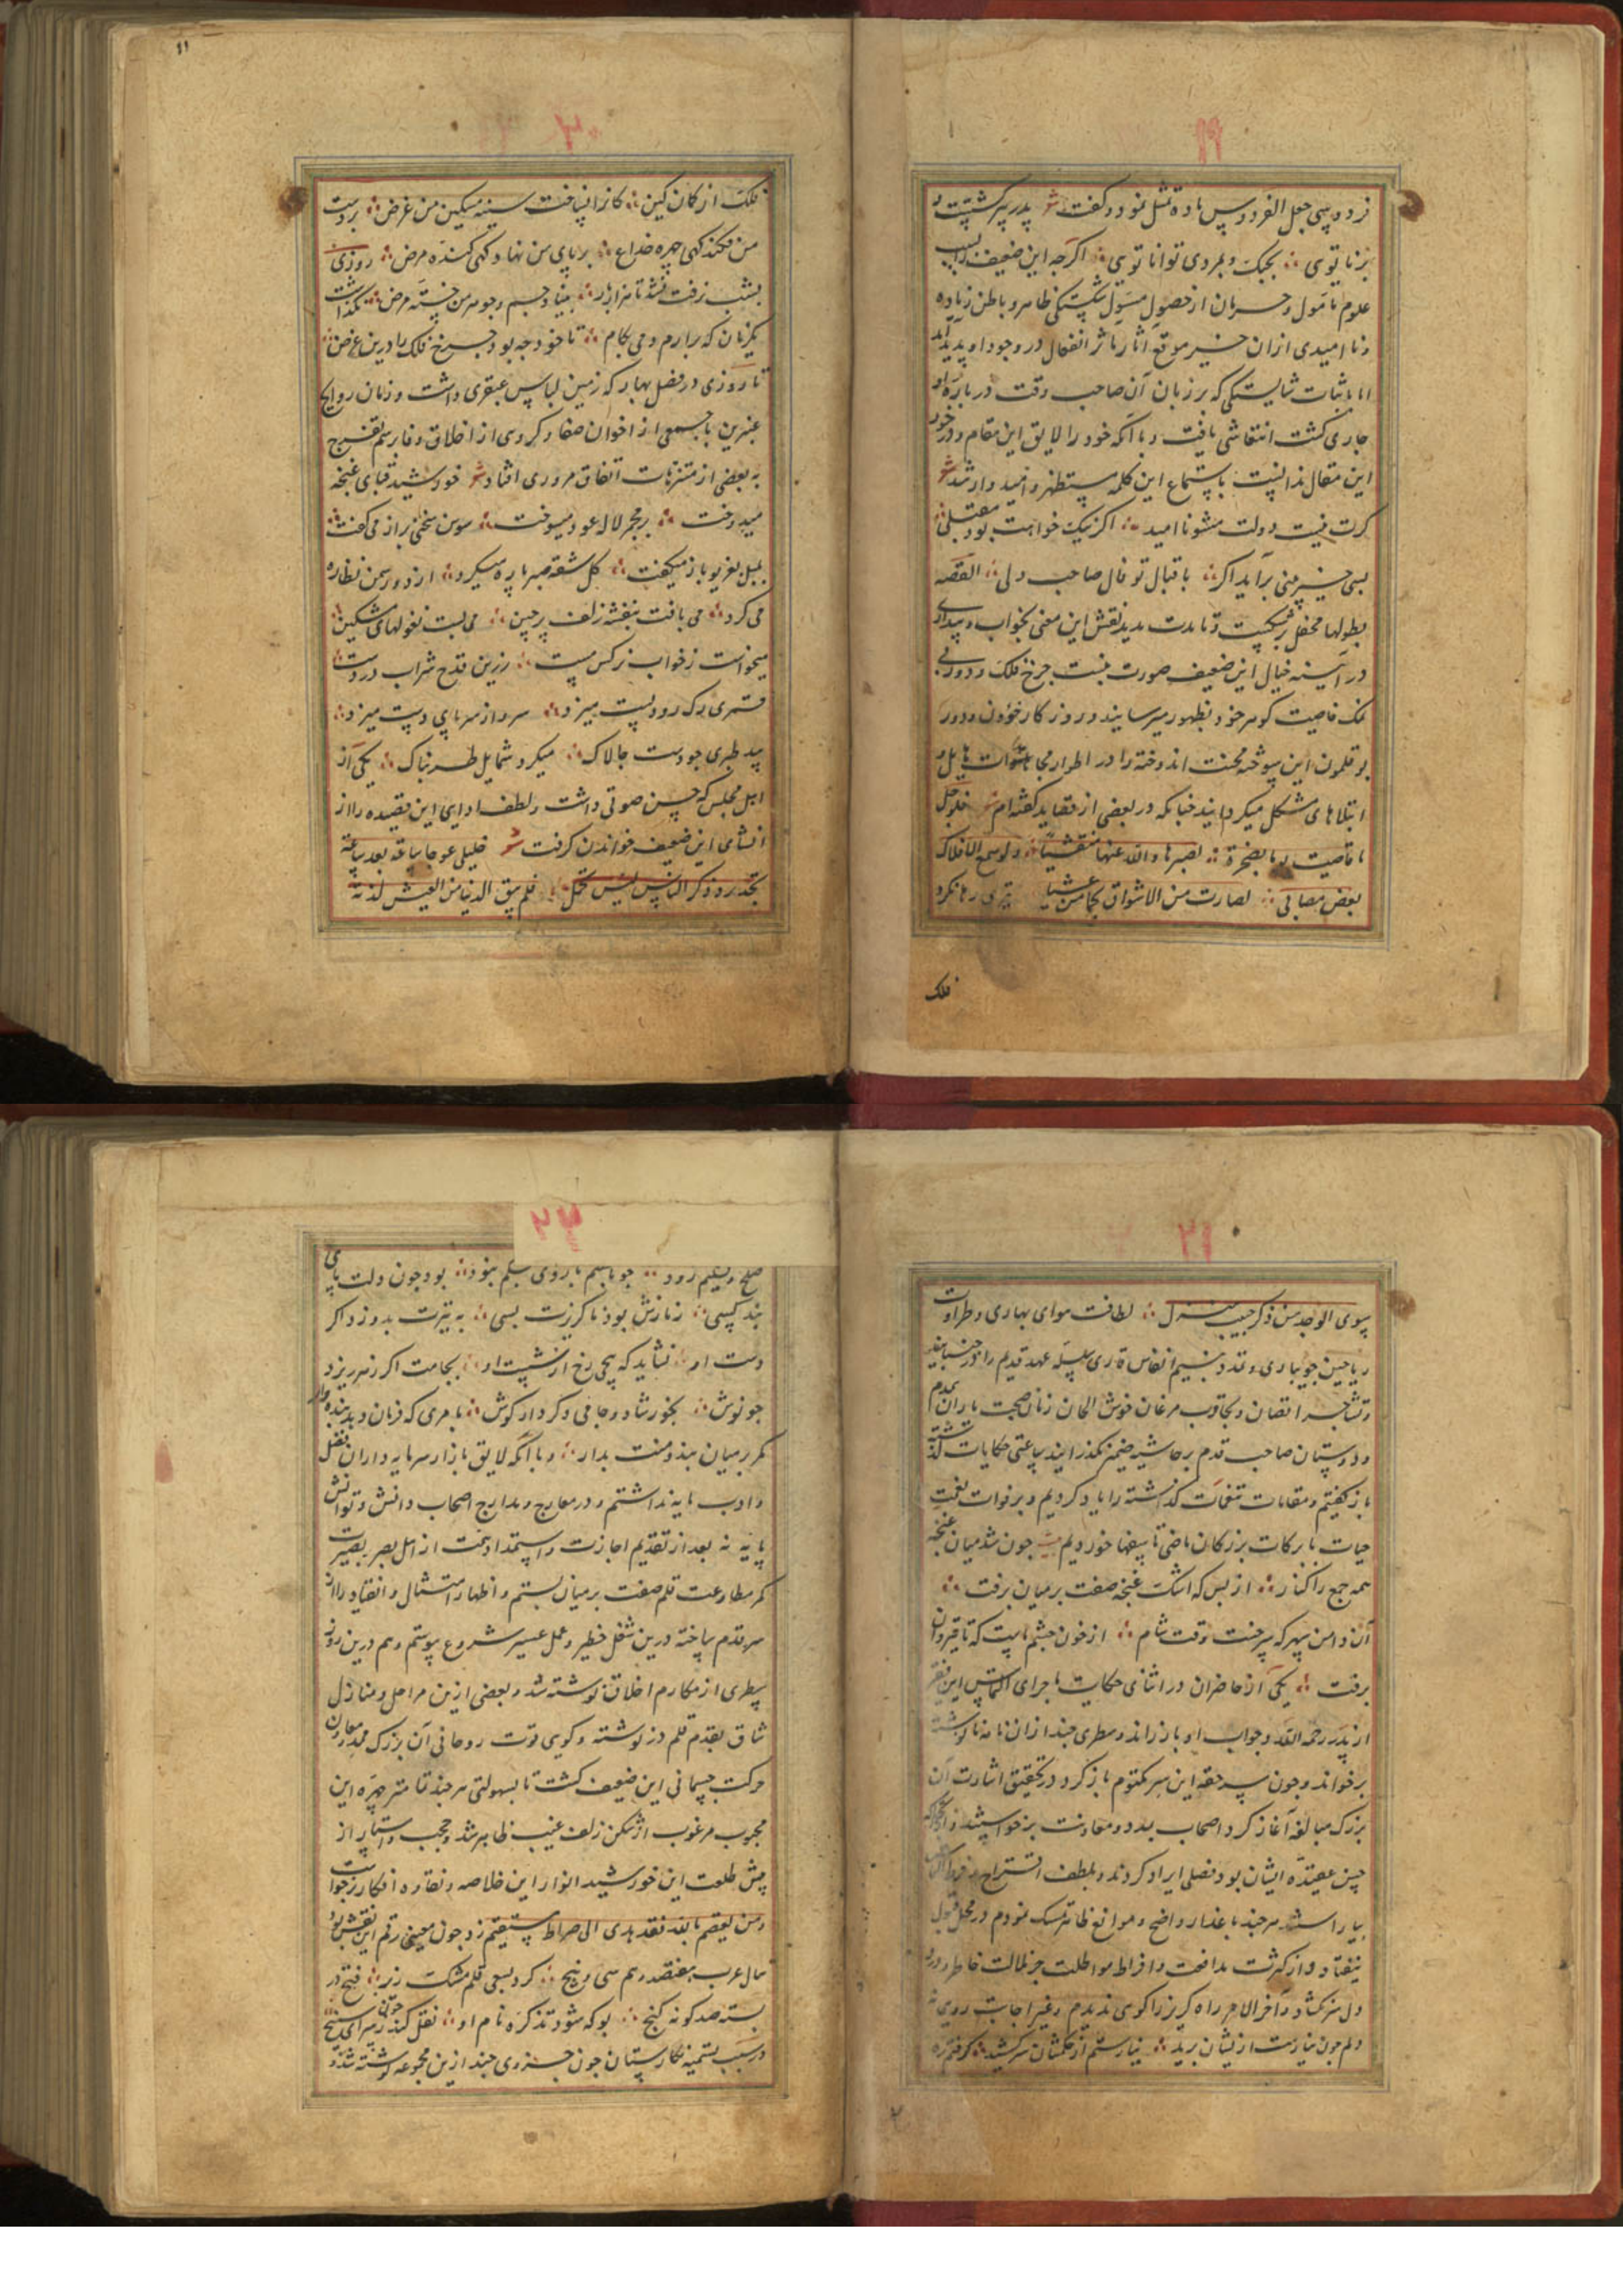 ۱۹
برنا توی ؞ بجنک و بمردی توانا توی ؞ اکرجه این ضعیف را بسبب
علوم نامول و حرمان از حصول مسول شکستکی ظاهر و باطن زیاده
و نا امیدی ازان خیر موقع آثار تاثر انفعال در وجود او پدید آمد
اما باثبات شایستکی که بر زبان آن صاحب وقت در باره او
جاری کشت انتعاشی یافت و با آنکه خود را لایق این مقام و در خور
این مقال ندانست باستماع این کلمه مستظهر و امیدوار شد
کرت نیست دولت مشو ناامید ؞ اکر نیک خواهت بود مقبلی
بسی خیر بینی برآید اکر ؞ باقبال تو فال صاحب دلی ؞ القصه
بطولها محفل بر شکست و تا مدت مدید نقش این معنی بخواب و بیداری
در آینه خیال این ضعیف صورت بست جرخ فلک و دور بی
نمک خاصیت کوهر خود بظهور میرسانیدند و روزکار خؤون و دور
بوقلمون این سوخته محنت اندوخته را در اطوار هایل و
ابتلاهای مشکل میکردانیدند جنانکه در بعضی از قصاید کفته ام
بعض مصابی ؞ لصارت من الاشواق
فلک
۲۰
فلک از کمان کین ؞ کانرا نساخت سینه مسکین من غرض ؞ بر دست
من فکند کهی جهره خداع ؞ بر پای من نهاد کهی کنده مرض ؞ روزی
بشب نرفت نشد تا هزار بار ؞ بنیاد جسم و جوهر من خسته مرض ؞ نکذاشت
یکزمان که برارم دمی بکام ؞ تا خود جه بود جرخ فلک را درین غرض
تا روزی در فصل بهار که زمین لباس عبقری داشت و زمان روایح
عنبرین با جمعی از اخوان صفا و کروهی از اخلاق وفا برسم تفرج
به بعضی از متنزهات اتفاق مروری افتاد خورشید قبای غنجه
میدوخت ؞ بر مجمر لاله عود میسوخت ؞ سوسن سخنی براز می کفت
بلبل بغریو باز میکفت ؞ کل شقه صبر پاره میکرد ؞ از دور سمن نظاره
می کرد ؞ می بافت بنفشه زلف پرچین ؞ می بست نغولهای مشکین
میخواست ز خواب نرکس مست ؞ زرین قدح شراب در دست
قمری رک رود پست میزد ؞ سرو از سر پای دست میزد ؞
بید طبری جو دست جالاک ؞ میکرد شمایل طربناک ؞ یکی از
اهل مجلس که حسن صوتی داشت و لطف ادایی این قصیده را از
انشای این ضعیف خواندن کرفت خلیلی عوجا ساعة بعد ساعة
فلم یبق الدنیا من العیش لذة
۲۱
بوی الوجد من ذکر حبیب منزل ؞ لطافت هوای بهاری و طراوت
ریاحین جویباری سلسله عهد قدیم را
و تجاوب مرغان خوش الحان زمان صحبت یاران همدم
و دوستان صاحب قدم بر حاشیه ضمیر بکذرانید ساعتی حکایات کذشته
باز کفتیم و مقامات کذاشته را یاد کردیم و بر فوات نعمت
حیات با برکات بزرکان ماضی تاسفها خوردیم بیت جون شد میان
همه جمع را کنار ؞ از بس که اشک غنجه صفت بر میان برفت ؞
آن دامن سپهر که سرخست وقت شام ؞ از خون جشم ماست که تا قیروان
برفت ؞ یکی از حاضران در اثنای حکایت ماجرای التماس این فقیر
از پدر رحمه الله و جواب او باز راند و سطری جند ازان نامه نانوشته
برخواند و جون سر حقه این سر مکتوم باز کرد و در تحقیق اشارت آن
بزرک مبالغه آغاز کرد اصحاب مدد و معاونت برخواستند و
حسن عقیده ایشان بود فصلی ایراد کردند و بلطف
بیاراستند هر جند باعذار واضح و موانع ظاهر تمسک نمودم در محل قبول
نیفتاد و از کثرت مدافعت و افراط مواظبت جز ملالت خاطر و درد
دل نکشاد و آخر الامر راه کریز را کوی ندیدم و بغیر اجابت روی نه
دلم جون نیارست ازیشان برید ؞ نیارستم از حکمشان سر کشید ؞ کرفتم ره
۲۲
صلح و تسلیم زود ؞ جو باسهم بازوی سلم نبود ؞ بود جون دلت پای
بند کسی ؞ ز نازش بود ناکزیرت بسی ؞ به تیرت بدوزد اکر
دست او ؞ نشاید که پیچی رخ از شست او ؞ بجامت اکر زهر ریزد
جو نوش ؞ بخور شاد و جامی دکر دار کوش ؞ بامری که فرمان دهد بنده وار
کمر بر میان بند و منت بدار ؞ و با آنکه لایق بازار سرمایه داران فضل
و ادب مایه نداشتم و در معارج و مدارج اصحاب دانش و توانش
پایه نه بعد از تقدیم اجازت و استمداد همت از اهل بصر بصیرت
کمر مطاوعت قلم صفت بر میان بستم و اظهار امتثال و انقیاد را از
سر قدم ساخته درین شغل خطیر و عمل عسیر شروع پیوستم و هم درین روز
سطری از مکارم اخلاق نوشته شد و بعضی ازین مراحل و منازل
شاق بقدم قلم در نوشته و کویی قوت روحانی آن بزرک ممد و معاون
حرکت جسمانی این ضعیف کشت تا بسهولتی هر جند تمامتر جهره این
محبوب مرغوب از شکن زلف غیب ظاهر شد و حجب و استار از
پیش طلعت این خورشید انوار این خلاصه و نقاوه افکار برخواست
و من یعتصم بالله فقد هدی الی صراط مستقیم زد جون معینی رقم این نقش بود
سال عرب هفتصد و هم سی و پنج ؞ کرد بسعی قلم مشک ریز ؞ فتح در
بسته صد کونه کنج ؞ بو که شود تذکره نام او ؞ نقل کند زین سرای سپنج
در سبب تسمیه نکارستان جون جزوی جند ازین مجموعه نوشته شد و